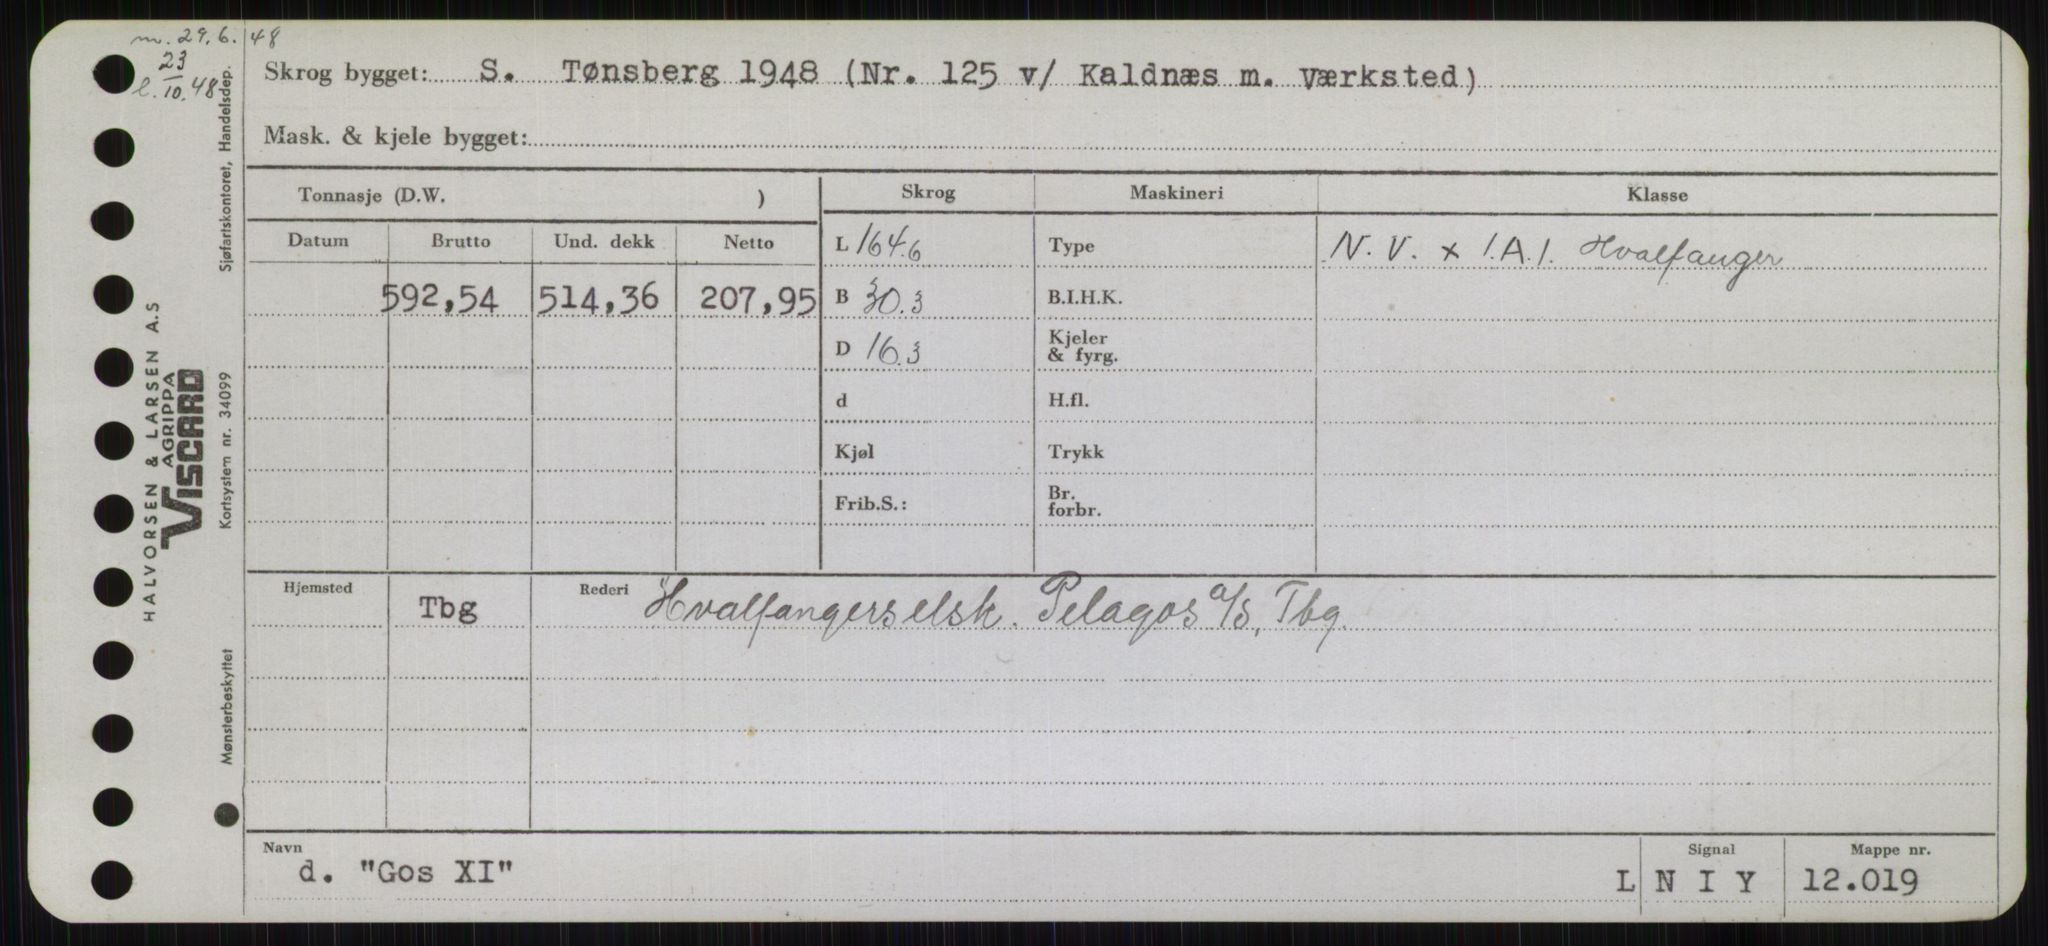 m. 29.6.48
l. 23/10.48
Skrog bygget: S. Tønsberg 1948 (Nr. 125 v/ Kaldnæs m. Værksted)
Mask. & kjele bygget:
Tonnasje (D.W. )
Skrog
Maskineri
Klasse
Datum
Brutto
Und. dekk
Netto
592,54
514,36
207,95
L 164.6
B 30.3
D 16.3
d
Kjøl
Frib.S.:
Type
B.I.H.K.
Kjeler
& fyrg.
H.fl.
Trykk
Br.
forbr.
N.V. x 1.A.1. Hvalfanger
Hjemsted
Tbg
Rederi
Hvalfangerselsk. Pelagos a/s, Tbg.
Navn
d. "Gos XI"
Signal
L N I Y
Mappe nr.
12.019
HALVORSEN & LARSEN A.S
AGRIPPA
VISCARD
Mønsterbeskyttet
Kortsystem nr. 34099
Sjøfartskontoret, Handelsdep.